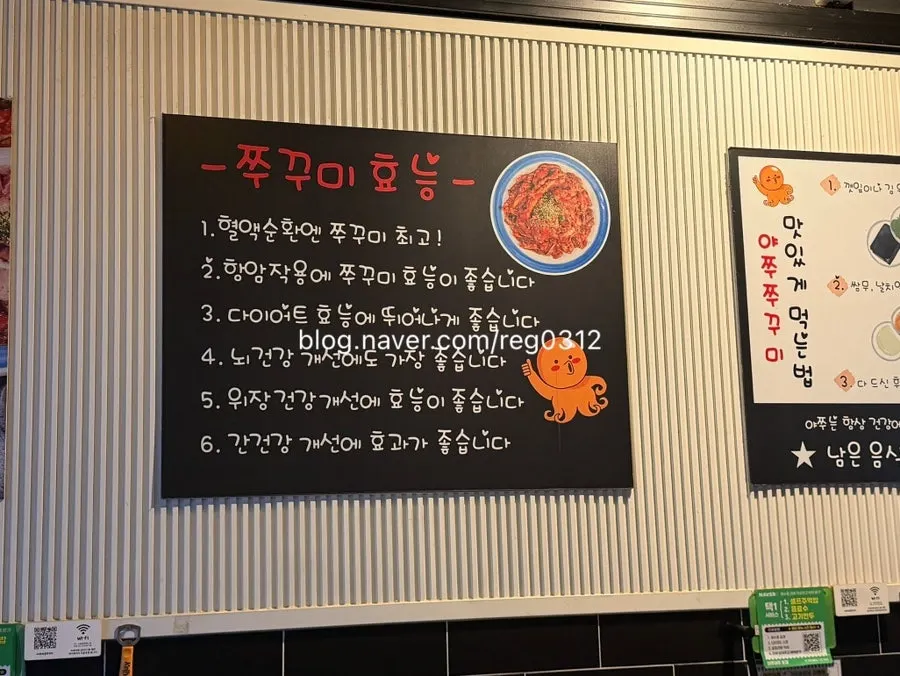 - 쭈꾸미 효능 -
1. 혈액순환엔 쭈꾸미 최고!
2. 항암작용에 쭈꾸미 효능이 좋습니다
3. 다이어트 효능에 뛰어나게 좋습니다
4. 뇌건강 개선에도 가장 좋습니다
5. 위장건강개선에 효능이 좋습니다
6. 간건강 개선에 효과가 좋습니다
blog.naver.com/reg0312
맛있게 먹는법
야쭈쭈꾸미
1. 깻잎이나 김
2. 쌈무, 날치
3. 다 드신 후
야쭈는 항상 건강
★ 남은 음식
WI-FI
택1
1. 셀프주먹밥
2. 음료수
3. 고기만두
WI-FI